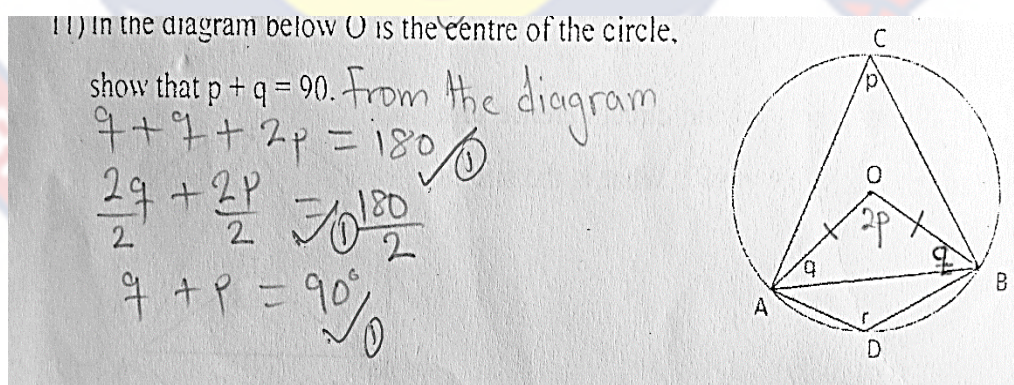 11) In the diagram below O is the centre of the circle,
show that p + q = 90. From the diagram
q + q + 2p = 180 ✓①
2q/2 + 2p/2 = ✓① 180/2
q + p = 90° ✓①
C
p
O
2p
q
q
A
B
r
D